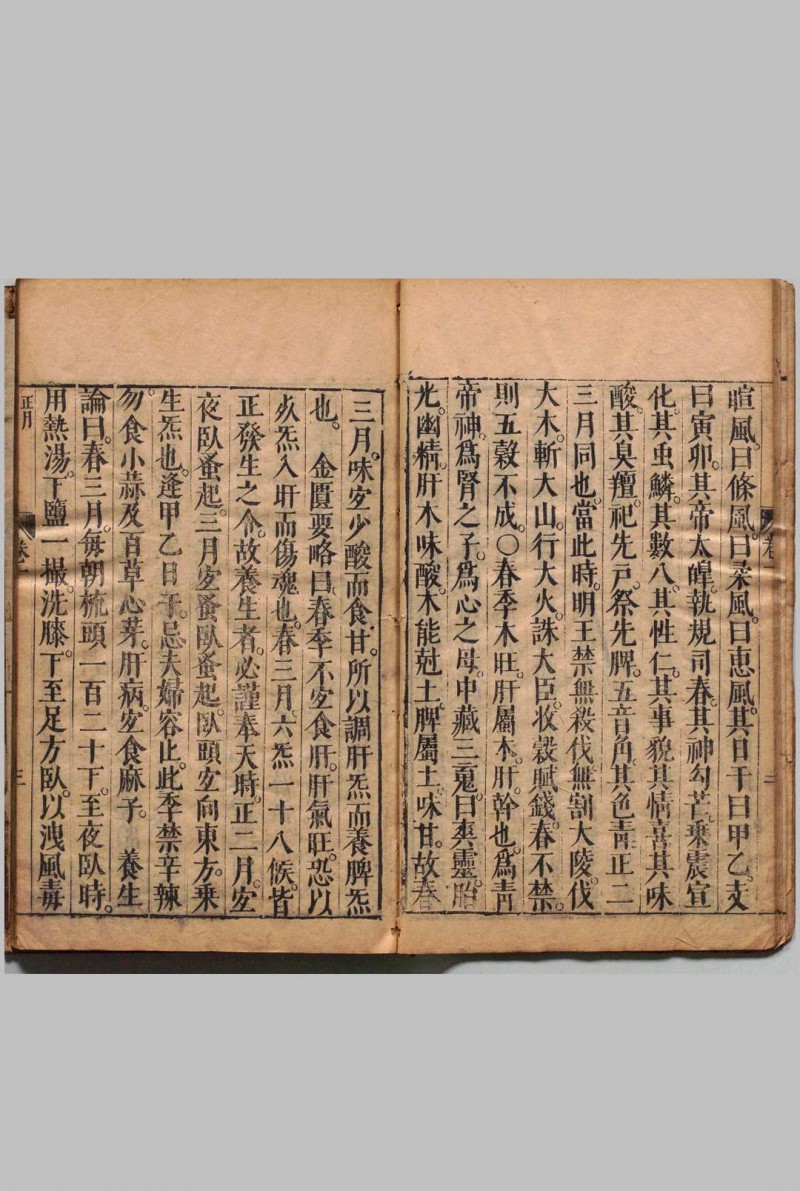 暄風。曰條風。曰柔風。曰恵風。其日干曰甲乙。支
曰寅卯。其帝太皥。執規司春。其神勾芒。乗震宣
化。其虫鱗。其數八。其性仁。其事貌其情喜其味
酸。其臭羶。祀先戸。祭先脾。五音角。其色青。正二
三月同也。當此時。明王禁無殺伐無割大陵。伐
大木。斬大山。行大火。誅大臣。收穀賦錢。春不禁。
則五穀不成。〇春季木旺。肝屬木。肝。幹也。爲青
帝神。爲腎之子。爲心之母。中藏三䰟。曰爽靈。胎
光。幽精。肝木味酸。木能尅土。脾屬土。味甘。故春
卷一
二
三月。味宐少酸而食甘。所以調肝炁而養脾炁
也。 金匱要略曰。春季不宐食肝。肝氣旺。恐以
死炁入肝而傷魂也。春三月。六炁一十八候。皆
正發生之令。故養生者。必謹奉天時。正二月。宐
夜臥蚤起。三月宐蚤臥蚤起。臥頭宐向東方。乗
生炁也。逢甲乙日子。忌夫婦容止。此季禁辛辣
勿食小蒜及百草心芽。肝病。宐食麻子。 養生
論曰。春三月。每朝梳頭一百二十下。至夜臥時。
用熱湯。下鹽一撮。洗膝下至足方臥。以洩風毒
正月
卷一
三